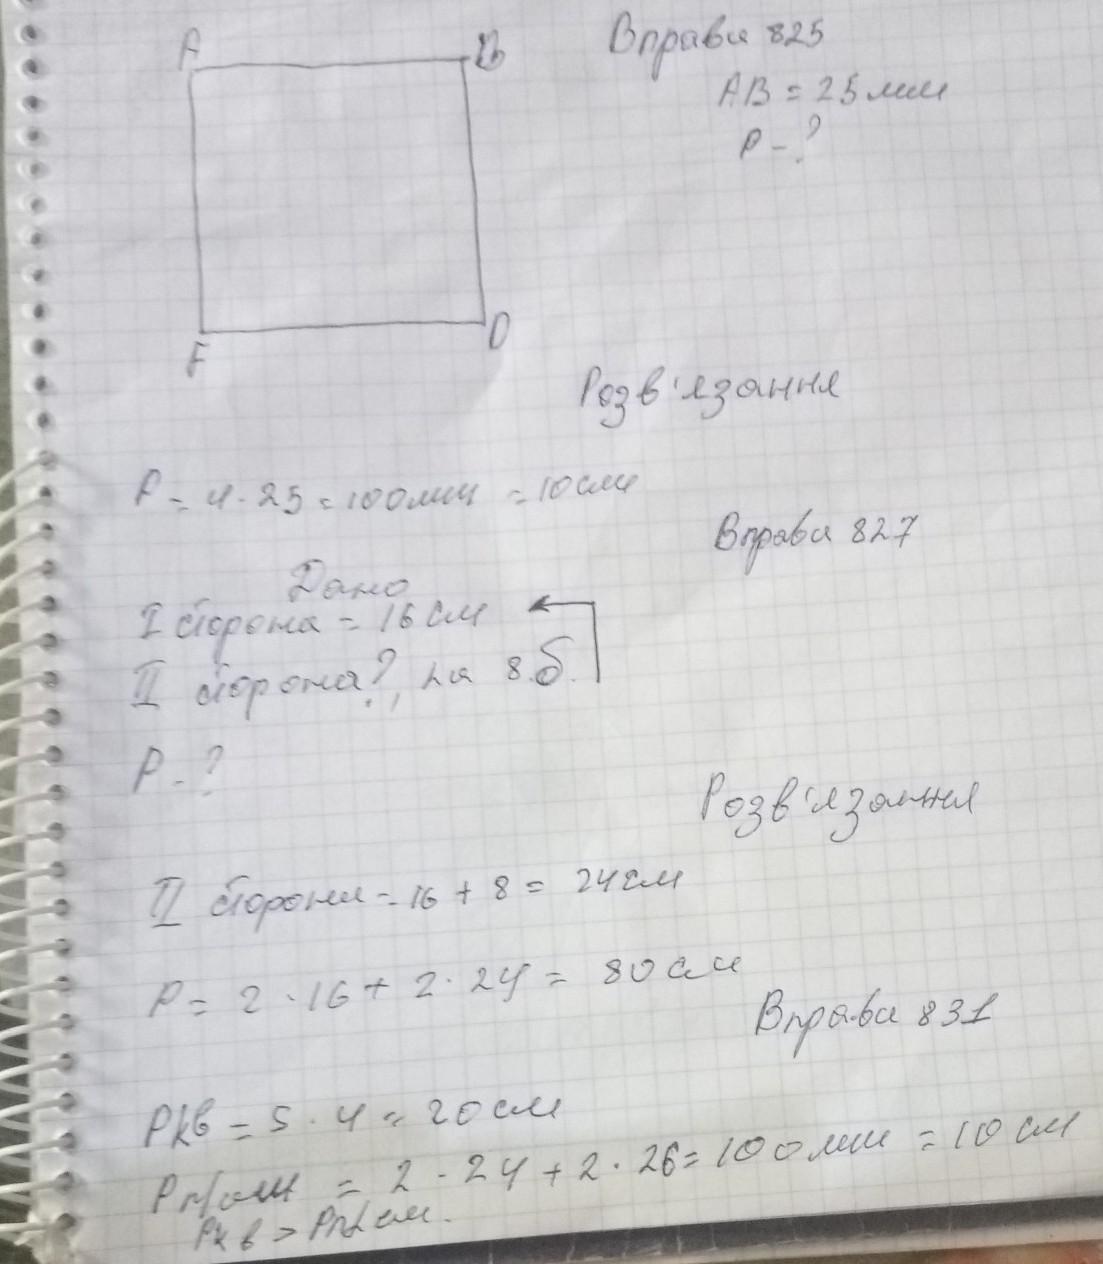 A
B
Вправа 825
AB = 25 мм
P - ?
F
D
Розв'язання
P = 4 · 25 = 100 мм = 10 см
Вправа 827
Дано
I сторона = 16 см
II сторона ?, на 8 б.
P - ?
Розв'язання
II сторона = 16 + 8 = 24 см
P = 2 · 16 + 2 · 24 = 80 см
Вправа 831
Pкв = 5 · 4 = 20 см
= 2 · 24 + 2 · 26 = 100 мм = 10 см
Pкв >